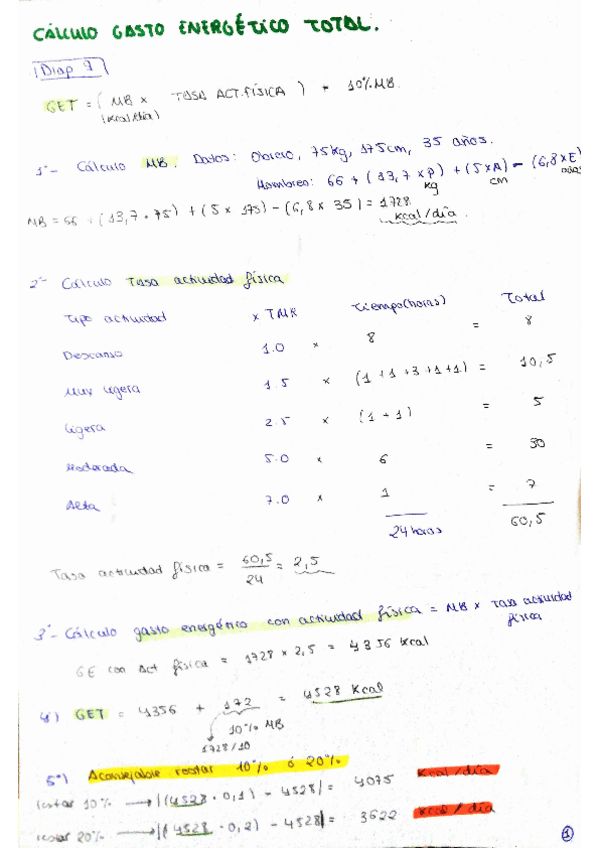 CÁLCULO GASTO ENERGÉTICO TOTAL.
Diap 9
GET = ( MB x TASA ACT.FÍSICA ) + 10% MB.
(Kcal/día)
1º- Cálculo MB. Datos: Obrero, 75kg, 175cm, 35 años.
Hombres: 66 + (13,7 x P) + (5 x A) - (6,8 x E)
kg cm años
MB = 66 + (13,7 · 75) + (5 x 175) - (6,8 x 35) = 1728 Kcal/día.
2º- Cálculo Tasa actividad física
Tipo actividad x TMR Tiempo(horas) Total
Descanso 1.0 x 8 = 8
Muy ligera 1.5 x (1 + 1 + 3 + 1 + 1) = 10,5
Ligera 2.5 x (1 + 1) = 5
Moderada 5.0 x 6 = 30
Alta 7.0 x 1 = 7
24 horas 60,5
Tasa actividad física = 60,5/24 = 2,5
3º- Cálculo gasto energético con actividad física = MB x Tasa actividad física
GE con Act física = 1728 x 2,5 = 4356 kcal
4º) GET = 4356 + 172 = 4528 Kcal
10% MB
1728/10
5º) Aconsejable restar 10% ó 20%
restar 10% → |(4528 · 0,1) - 4528| = 4075 Kcal/día
restar 20% → |(4528 · 0,2) - 4528| = 3622 Kcal/día
1